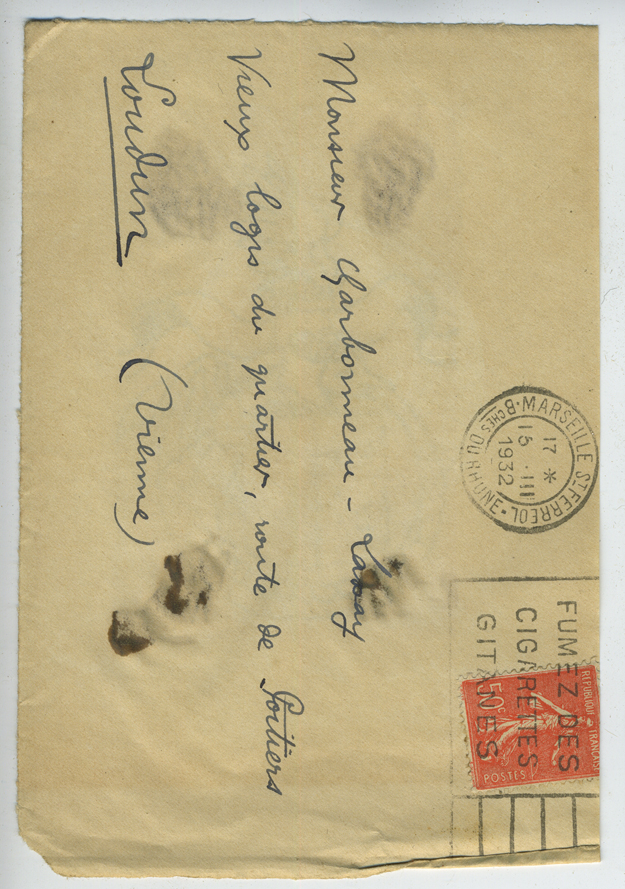 MARSEILLE ST FERREOL
17 *
15 III
1932
BCHES DU RHONE
FUMEZ DES
CIGARETTES
GITANES
REPUBLIQUE FRANCAISE
50c
POSTES
Monsieur Charbonneau - Lassay
Vieux logis du quartier, route de Poitiers
Loudun (Vienne)